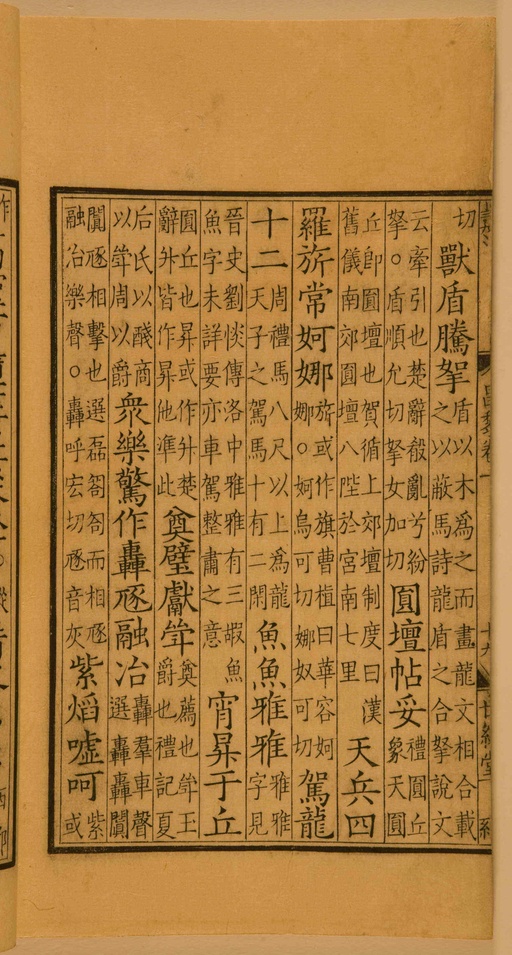 切
獸盾騰拏
盾以木爲之而畫龍文相合載
之以蔽馬詩龍盾之合拏說文
云牽引也楚辭殽亂兮紛
拏○盾順允切拏女加切
圓壇帖妥
禮圓丘
象天圓
丘即圓壇也賀循上郊壇制度曰漢
舊儀南郊圓壇八陛於宮南七里
天兵四
羅旂常妸娜
旂或作旗曹植曰華容妸
娜○妸烏可切娜奴可切
駕龍
十二
周禮馬八尺以上爲龍
天子之駕馬十有二閑
魚魚雅雅
雅雅
字見
晉史劉惔傳洛中雅雅有三嘏魚
魚字未詳要亦車駕整肅之意
宵昇于丘
圓丘也昇或作升楚
辭升皆作昇他準此
奠璧獻斝
奠薦也斝玉
爵也禮記夏
后氏以醆商
以斝周以爵
衆樂驚作轟豗融冶
轟羣車聲
選轟轟闐
闐豗相擊也選磊匒匒而相豗
融冶樂聲○轟呼宏切豗音灰
紫焰噓呵
紫
或